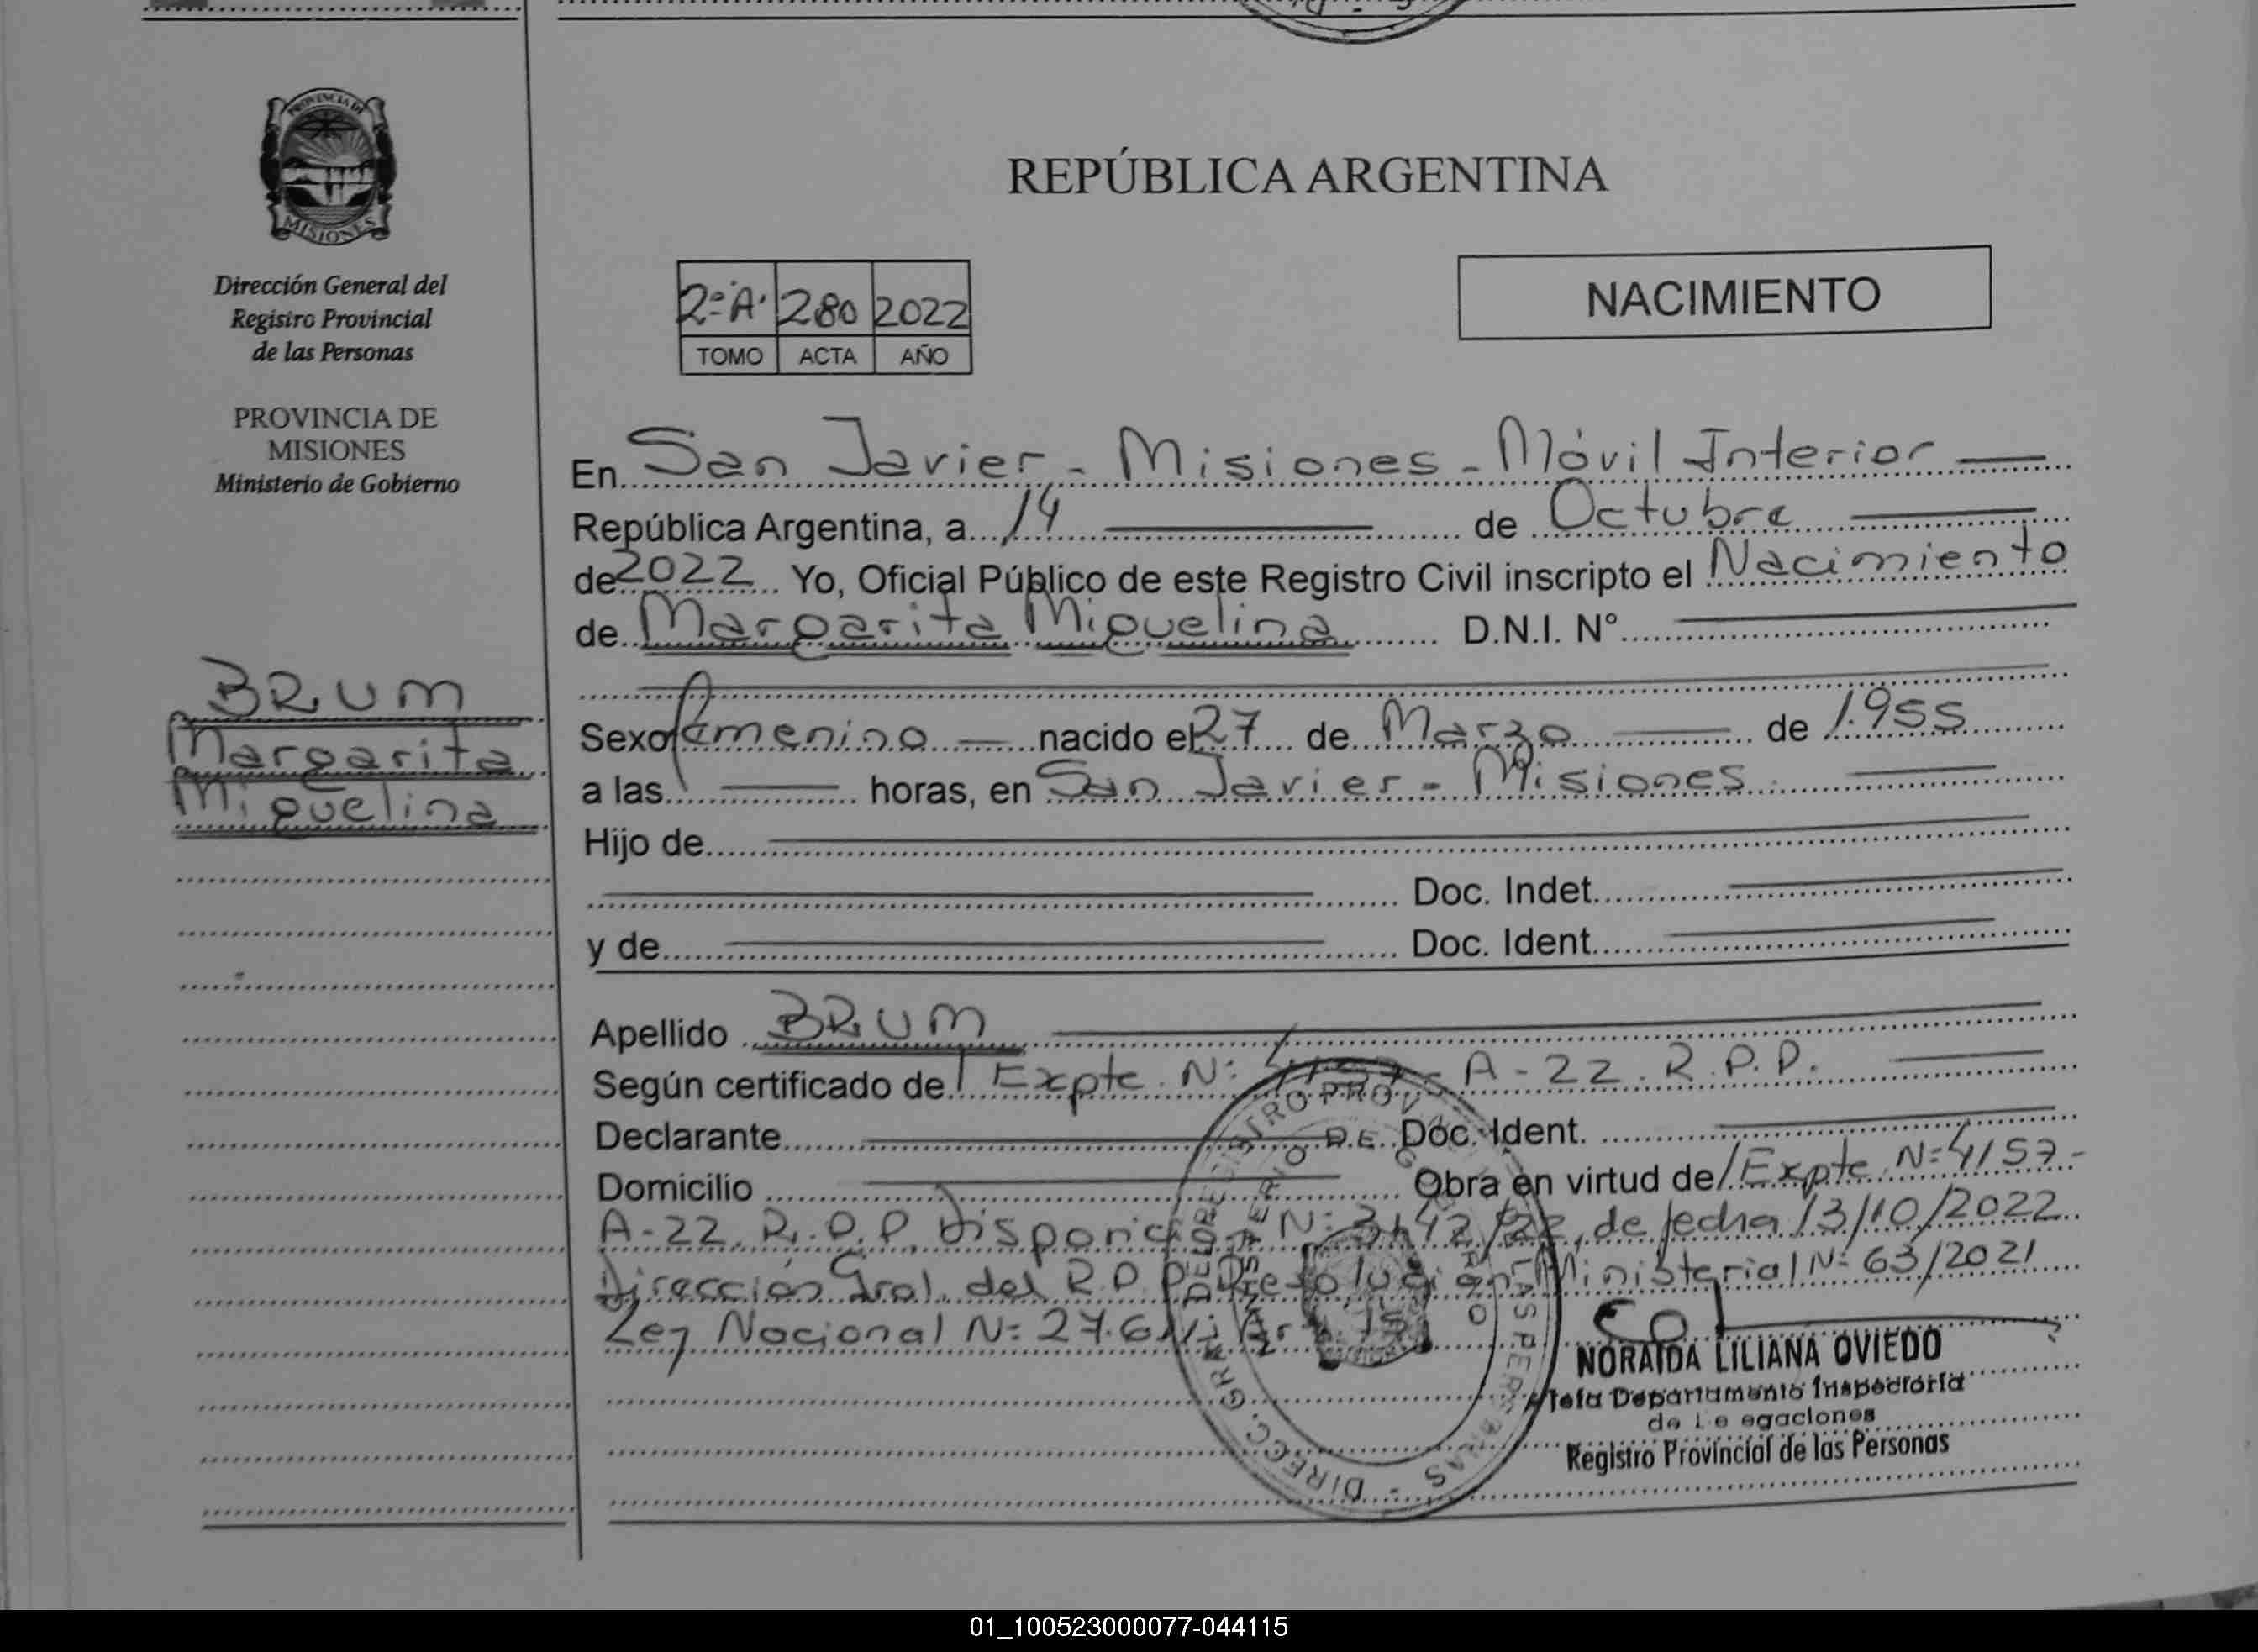 PROVINCIA DE
MISIONES
Dirección General del
Registro Provincial
de las Personas
PROVINCIA DE
MISIONES
Ministerio de Gobierno
BRUM
Margarita
Miguelina
REPÚBLICA ARGENTINA
2º A. 280 2022
TOMO ACTA AÑO
NACIMIENTO
En San Javier - Misiones - Móvil Interior
República Argentina, a 14 de Octubre
de 2022 Yo, Oficial Público de este Registro Civil inscripto el Nacimiento
de Margarita Miguelina D.N.I. N°
Sexo femenino nacido el 27 de Marzo de 1.955
a las horas, en San Javier - Misiones.
Hijo de
Doc. Indet.
y de Doc. Ident.
Apellido BRUM
Según certificado de Expte. Nº 4157- A-22. R.P.P.
Declarante Doc. Ident.
Domicilio Obra en virtud de Expte. Nº 4157-
A-22. R.P.P. Nº 3142/22, de fecha 13/10/2022
Dirección Gral. del R.P.P. Resolución Ministerial Nº 63/2021
Ley Nacional Nº
NORAIDA LILIANA OVIEDO
Jefa Departamento Inspectoría
de Delegaciones
Registro Provincial de las Personas
01_100523000077-044115